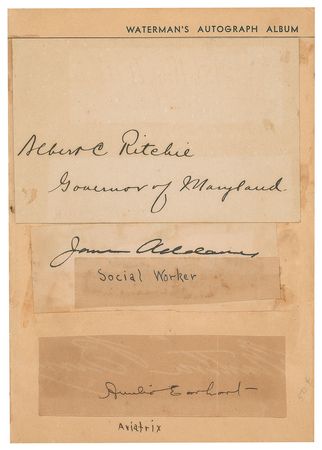 WATERMAN'S AUTOGRAPH ALBUM
Albert C Ritchie
Governor of Maryland.
Jane Addams
Social Worker
Amelia Earhart
Aviatrix